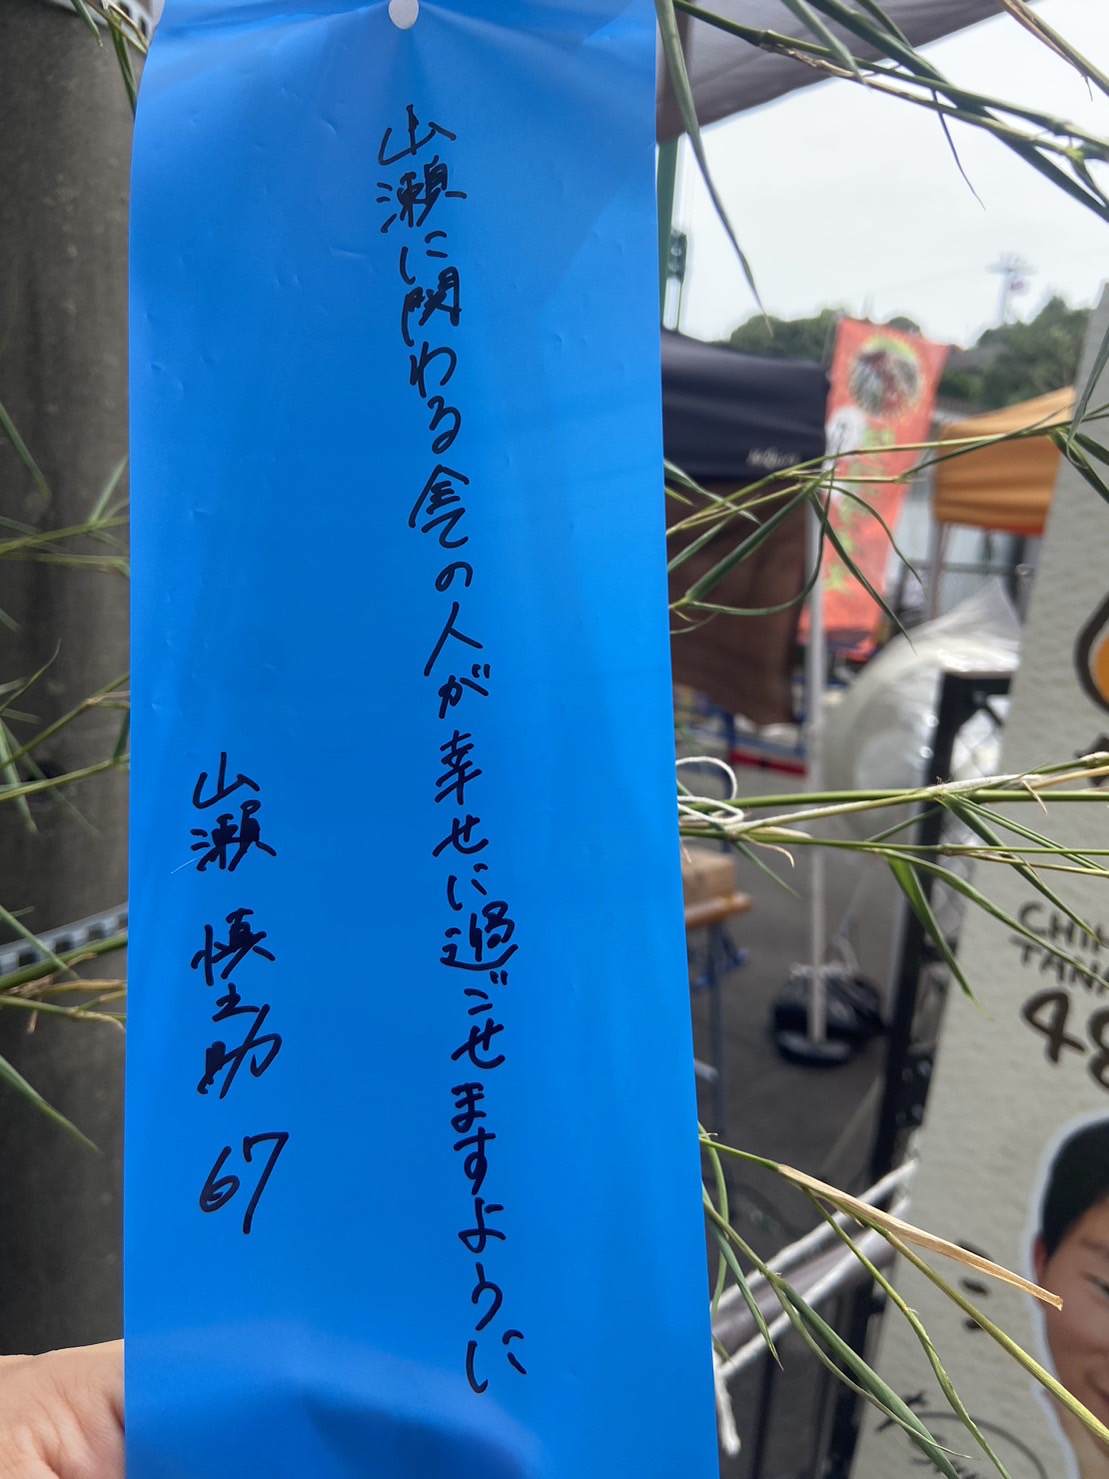 山瀬に関わる全ての人が幸せに過ごせますように
山瀬 慎之助 67
CHIH
TANA
48